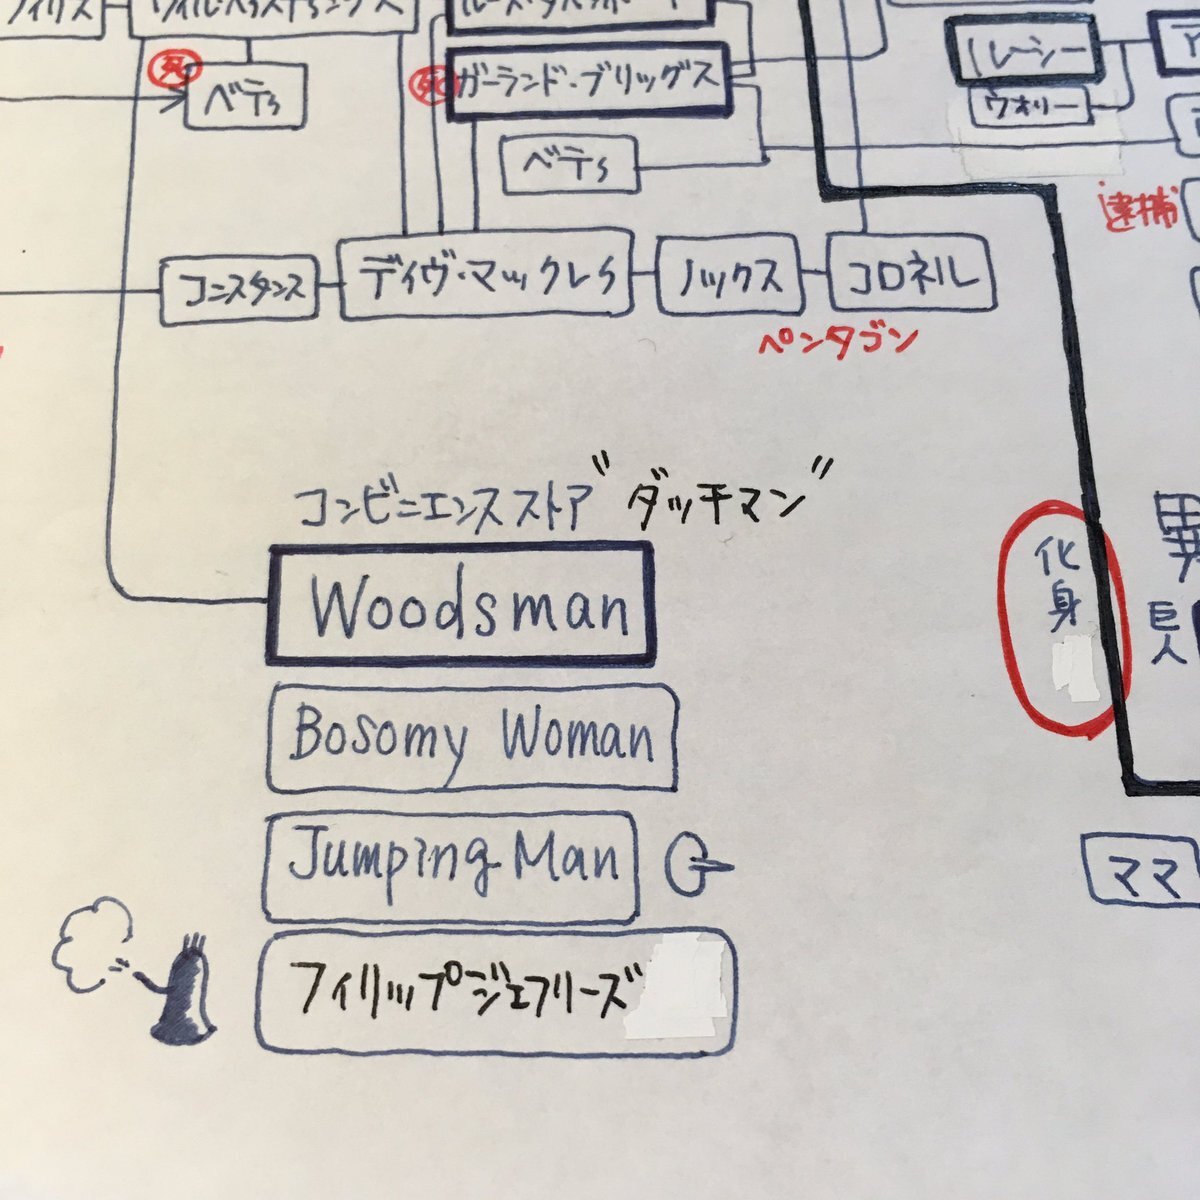 死
ベティ
死
ガーランド・ブリッグス
トレーシー
ウオリー
ベティ
逮捕
コンスタンス
ディヴ・マックレイ
ノックス
コロネル
ペンタゴン
コンビニエンスストア"ダッチマン"
Woodsman
化身
巨人
Bosomy Woman
Jumping Man
ママ
フィリップジェフリーズ